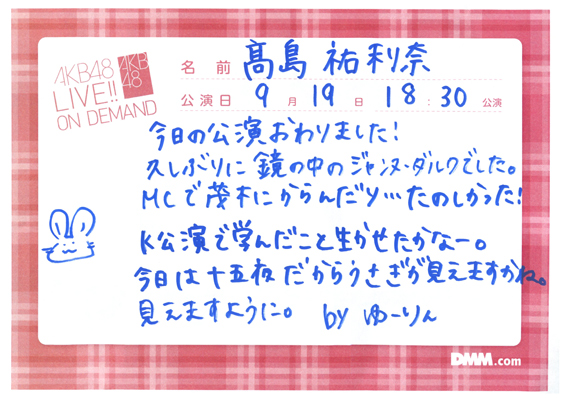 AKB48
LIVE!!
ON DEMAND
AKB
48
名前 髙島 祐利奈
公演日 9月19日 18:30公演
今日の公演おわりました!
久しぶりに鏡の中のジャンヌ・ダルクでした。
MCで茂木にからんだり…たのしかった!
K公演で学んだこと生かせたかなー。
今日は十五夜だからうさぎが見えますかね。
見えますように。 by ゆーりん
DMM.com